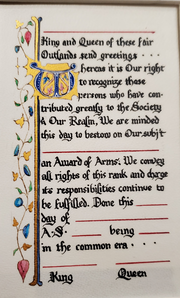 King and Queen of these fair
Outlands send greetings · · ·
Whereas it is Our right
to recognize those
persons who have con-
tributed greatly to the Society
& Our Realm, We are minded
this day to bestow on Our subjt
an Award of Arms. We convey
all rights of this rank and charge
its responsibilities continue to
be fulfilled. Done this
day of
A·S· being
in the common era · · ·
King Queen